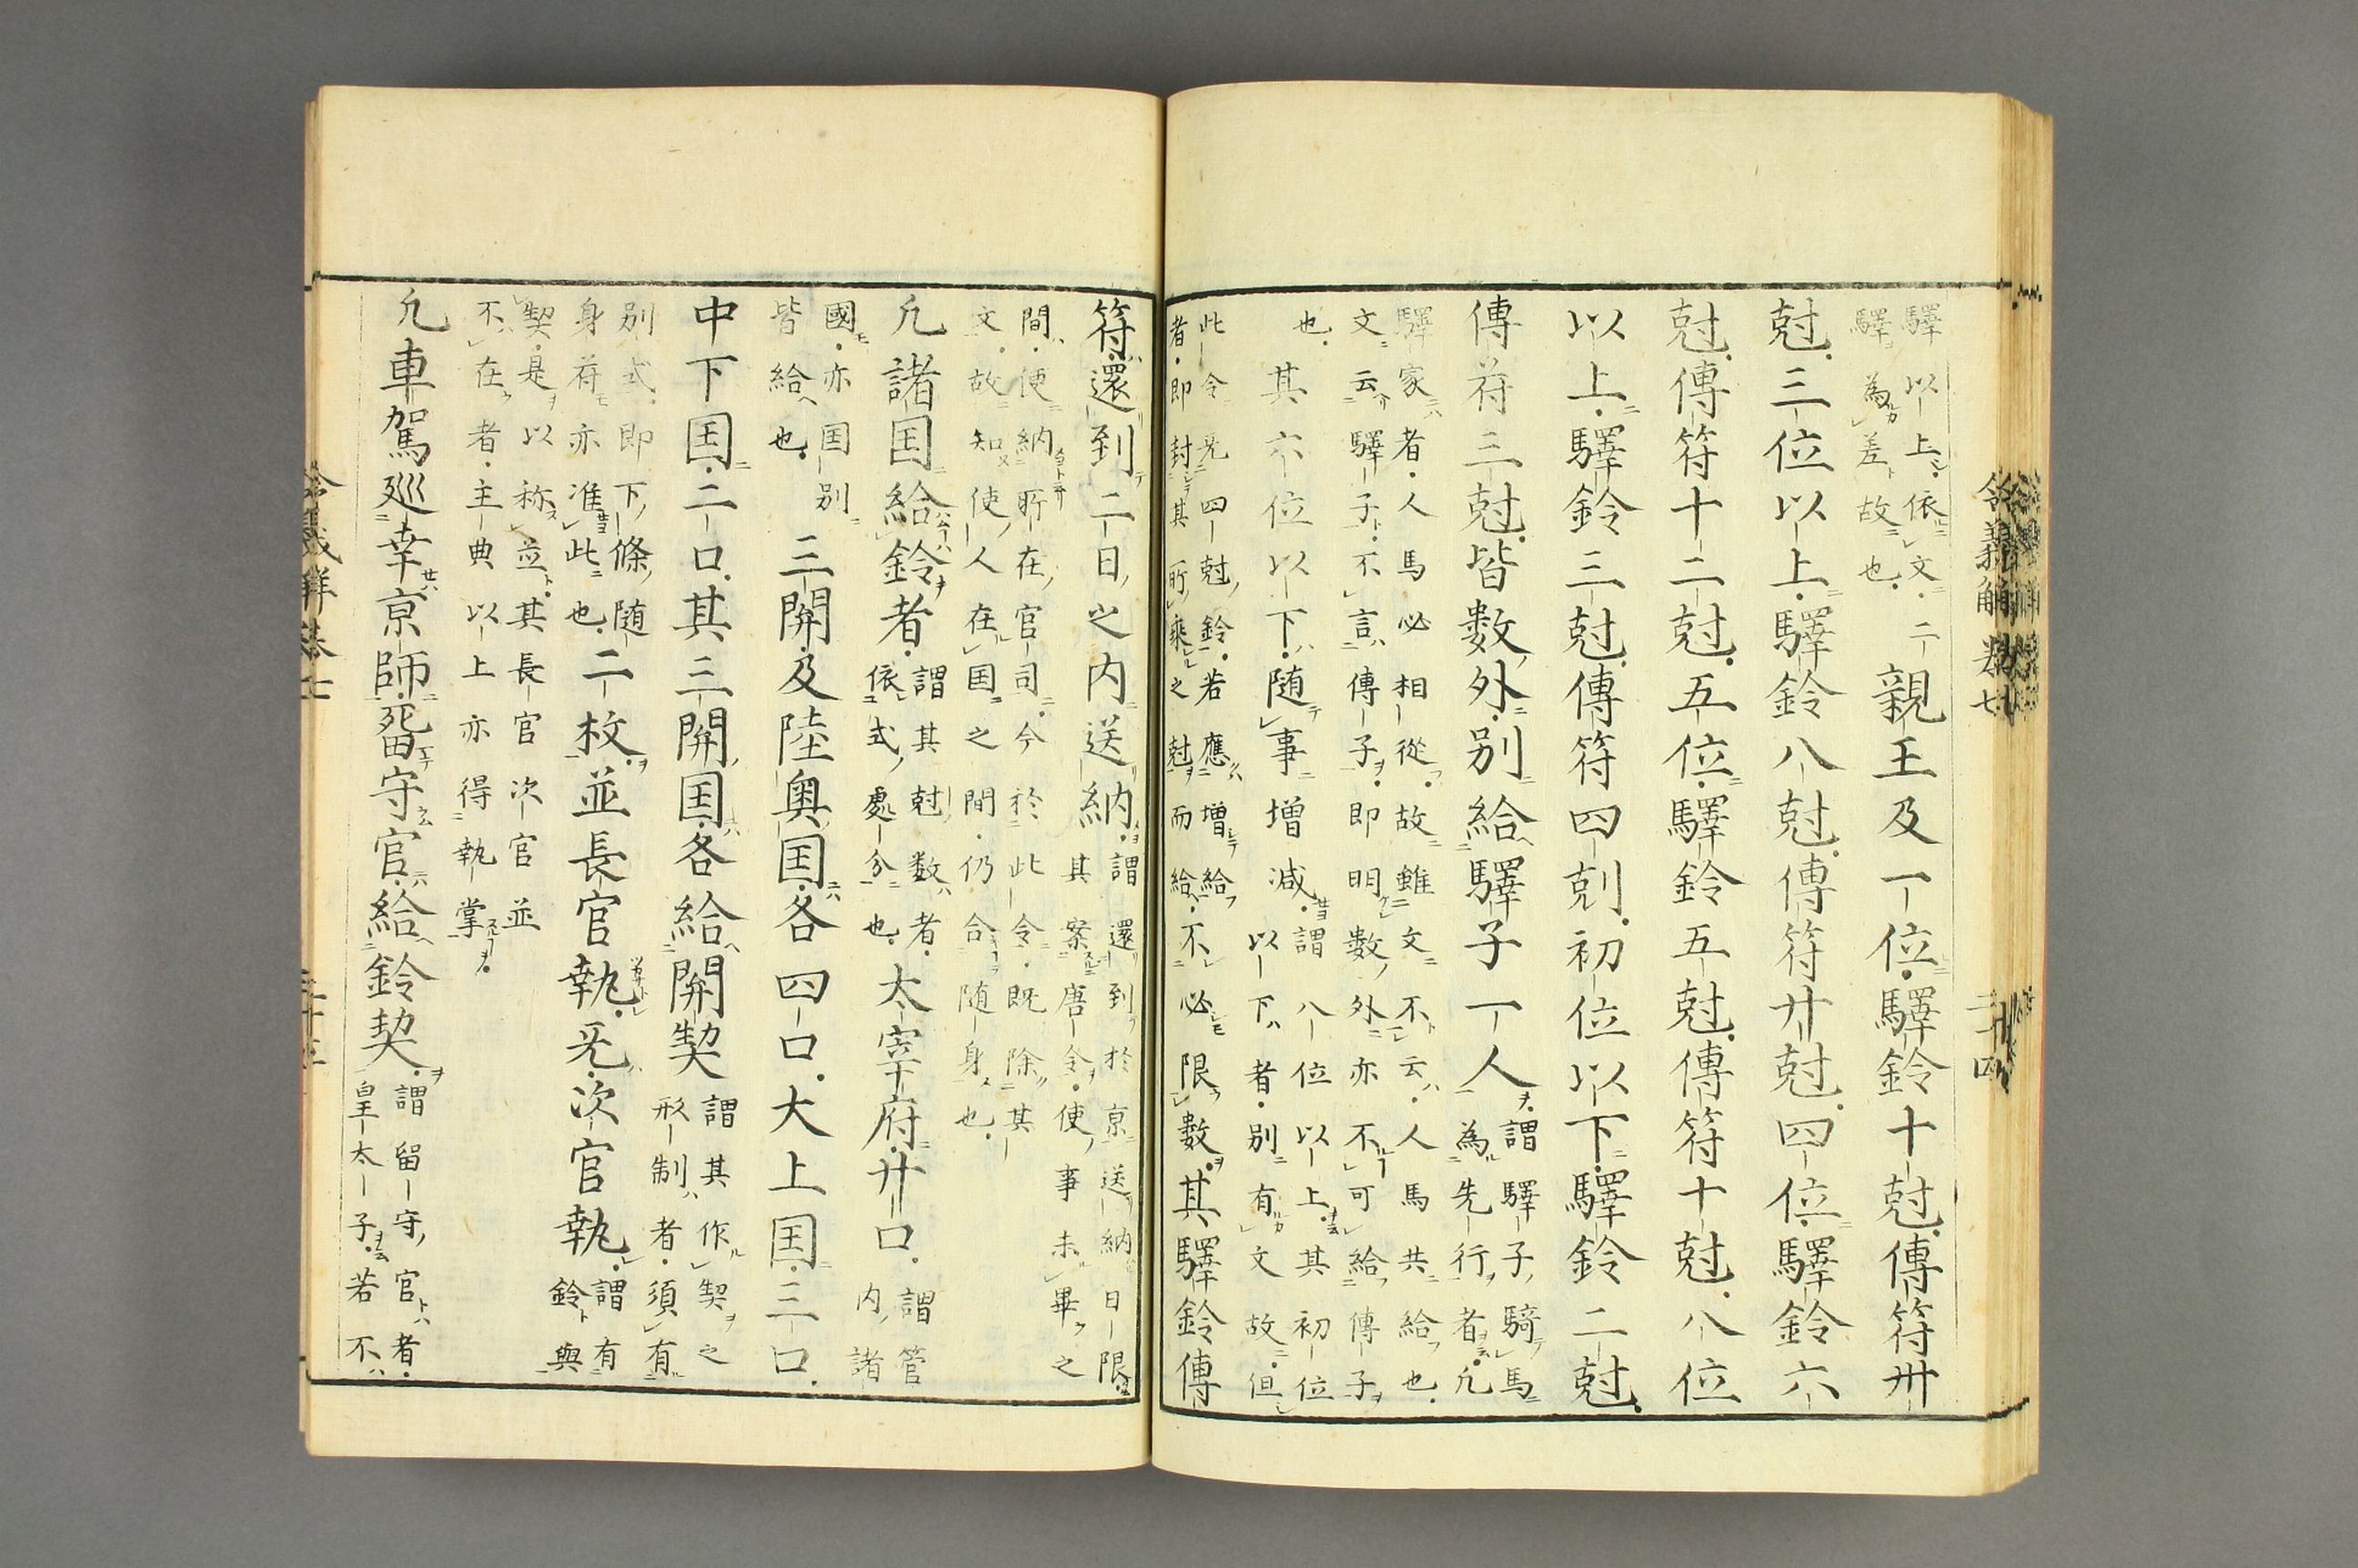 驛以上依文二
驛為差故也
親王及一位驛鈴十尅傳符卅
尅三位以上驛鈴八尅傳符廿尅四位驛鈴六
尅傳符十二尅五位驛鈴五尅傳符十尅八位
以上驛鈴三尅傳符四剋初位以下驛鈴二尅
傳符三尅皆數外別給驛子一人
謂驛子騎馬
為先行者凢
驛家者人馬必相從故雖文不云人馬共給也
文云驛子不言傳子即明數外亦不可給傳子
也
其六位以下随事増減
謂八位以上其初位
以下者別有文故但
此令凢四尅鈴若應増給
者即封其所乘之尅而給
不必限數其驛鈴傳
符還到二日之内送納
謂還到於京送納日限
其案唐令使事未畢之
間便納所在官司今於此令既除其
文故知使人在国之間仍合随身也
凢諸国給鈴者
謂其尅数者
依式處分也
太宰府廿口
謂管
内諸
國亦国別
皆給也
三關及陸奥国各四口大上国三口
中下国二口其三關国各給關契
謂其作契之
形制者須有
別式即下條随
身符亦准此也
二枚並長官執旡次官執
謂有
鈴與
契是以称並其長官次官並
不在者主典以上亦得執掌
凢車駕巡幸京師留守官給鈴契
謂留守官者
皇太子若不
令義解巻七
二十四